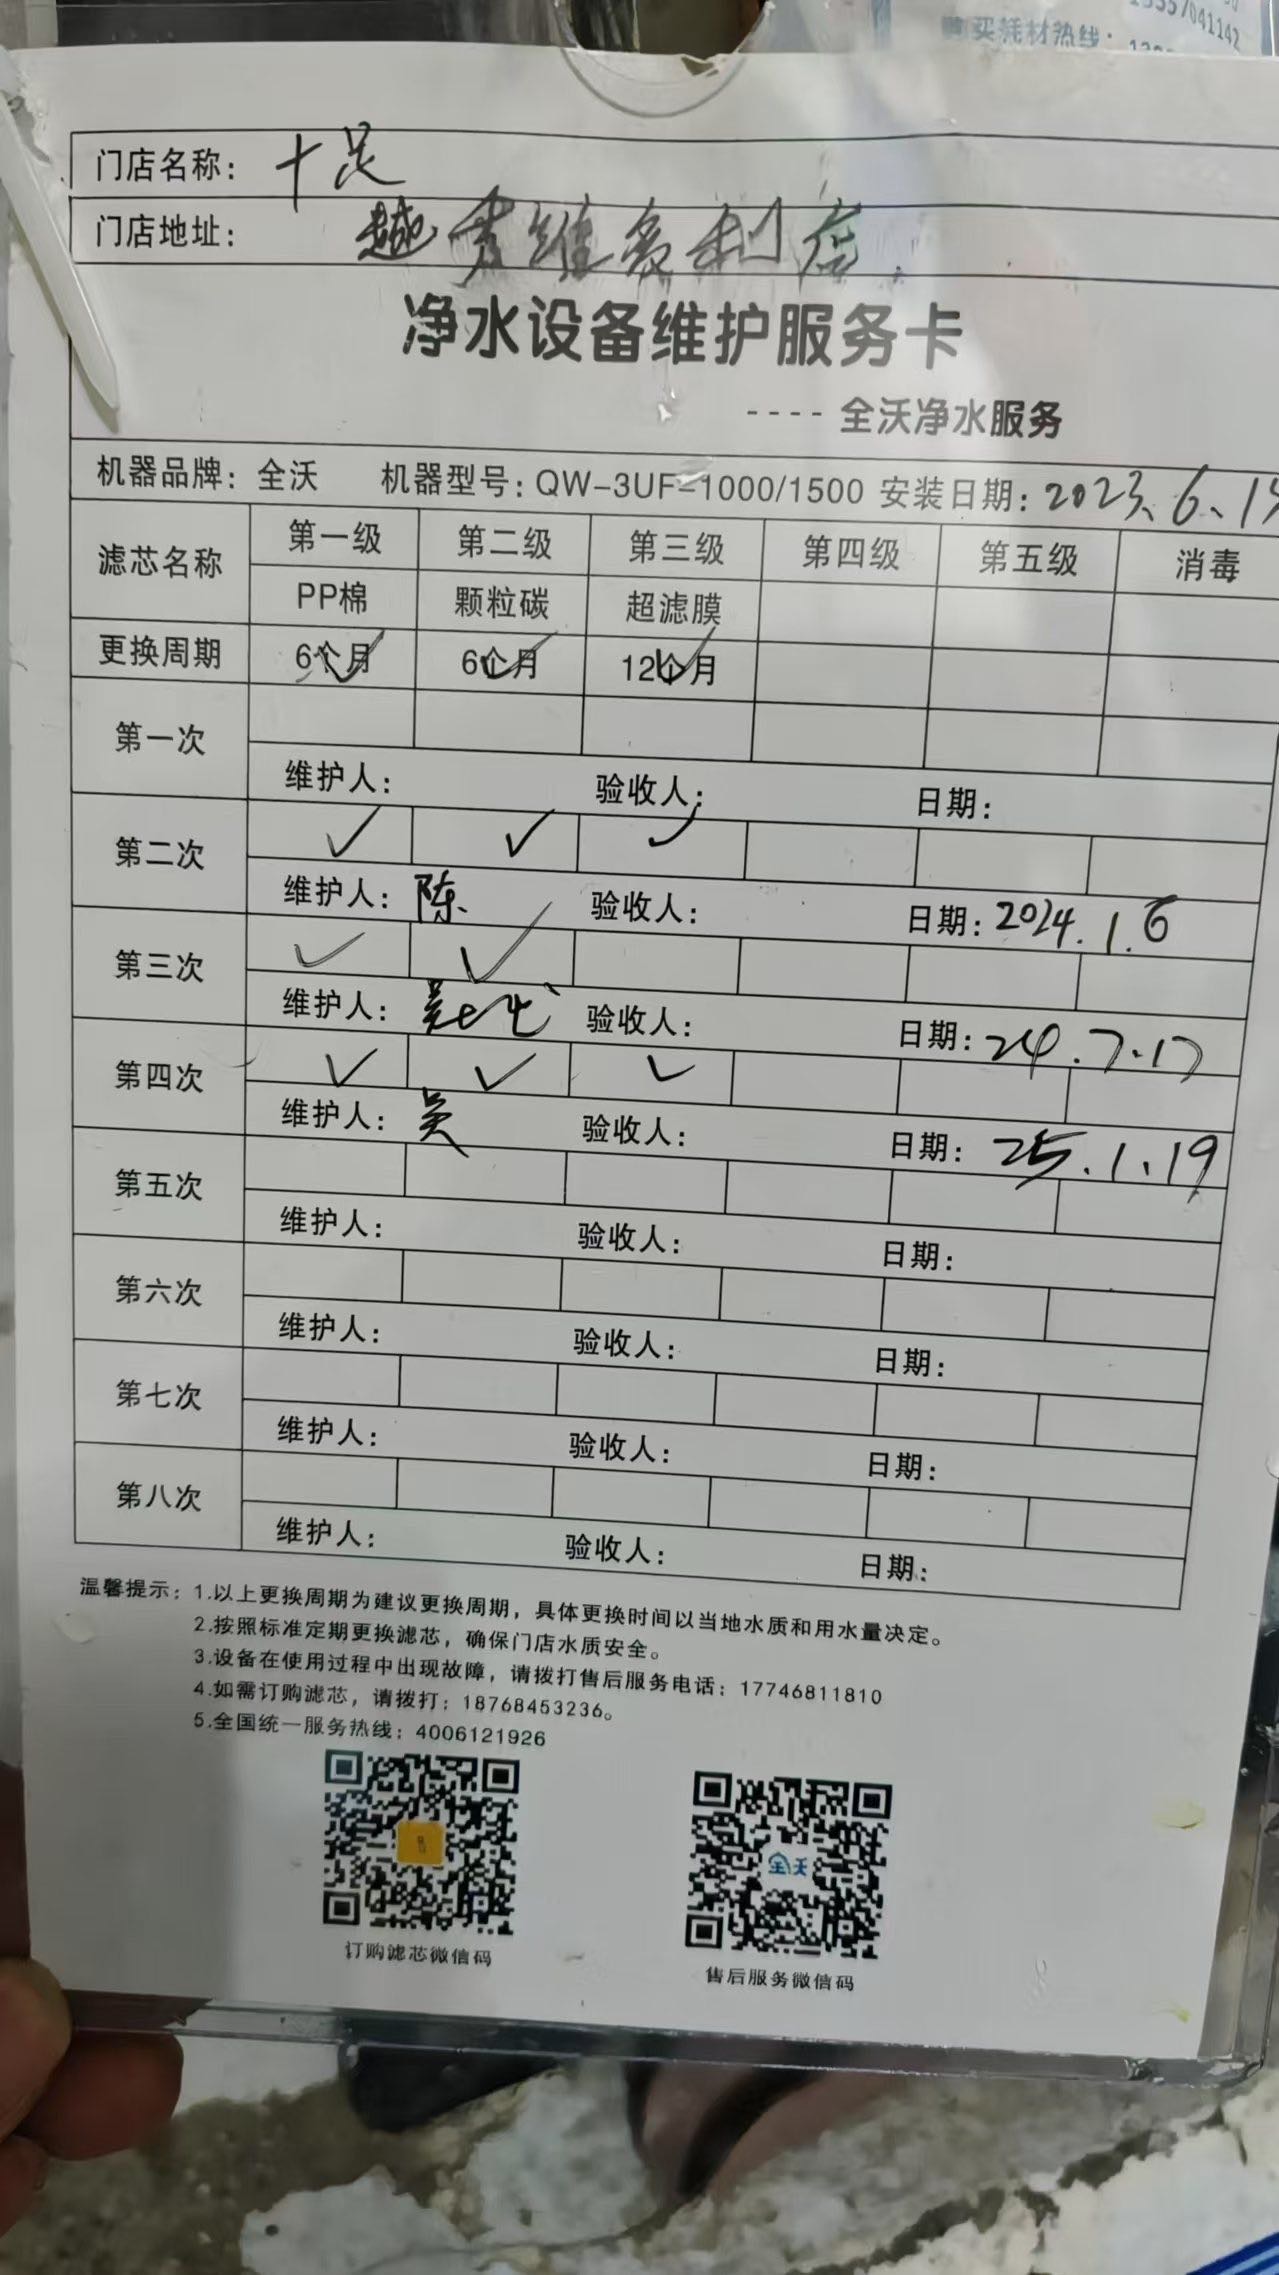 13357041142
购买耗材热线：
门店名称：十足
门店地址：越秀维多利店
净水设备维护服务卡
---- 全沃净水服务
机器品牌：全沃 机器型号：QW-3UF-1000/1500 安装日期：2023.6.
滤芯名称 第一级 第二级 第三级 第四级 第五级 消毒
PP棉 颗粒碳 超滤膜
更换周期 6个月 6个月 12个月
第一次
维护人： 验收人： 日期：
第二次 ✓ ✓ ✓
维护人：陈 验收人： 日期：2024.1.6
第三次 ✓ ✓
维护人：吴 验收人： 日期：24.7.17
第四次 ✓ ✓ ✓
维护人：吴 验收人： 日期：25.1.19
第五次
维护人： 验收人： 日期：
第六次
维护人： 验收人： 日期：
第七次
维护人： 验收人： 日期：
第八次
维护人： 验收人： 日期：
温馨提示：1.以上更换周期为建议更换周期，具体更换时间以当地水质和用水量决定。
2.按照标准定期更换滤芯，确保门店水质安全。
3.设备在使用过程中出现故障，请拨打售后服务电话：17746811810
4.如需订购滤芯，请拨打：18768453236。
5.全国统一服务热线：4006121926
全沃
订购滤芯微信码
售后服务微信码